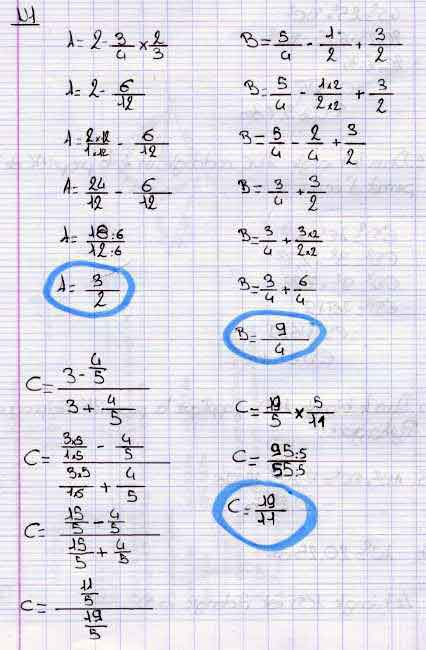 N1
A = 2 - 3/4 × 2/3
A = 2 - 6/12
A = 2×12/1×12 - 6/12
A = 24/12 - 6/12
A = 18:6/12:6
A = 3/2
B = 5/4 - 1/2 + 3/2
B = 5/4 - 1×2/2×2 + 3/2
B = 5/4 - 2/4 + 3/2
B = 3/4 + 3/2
B = 3/4 + 3×2/2×2
B = 3/4 + 6/4
B = 9/4
C = (3 - 4/5)/(3 + 4/5)
C = (3×5/1×5 - 4/5)/(3×5/1×5 + 4/5)
C = (15/5 - 4/5)/(15/5 + 4/5)
C = (11/5)/(19/5)
C = 19/5 × 5/11
C = 95:5/55:5
C = 19/11